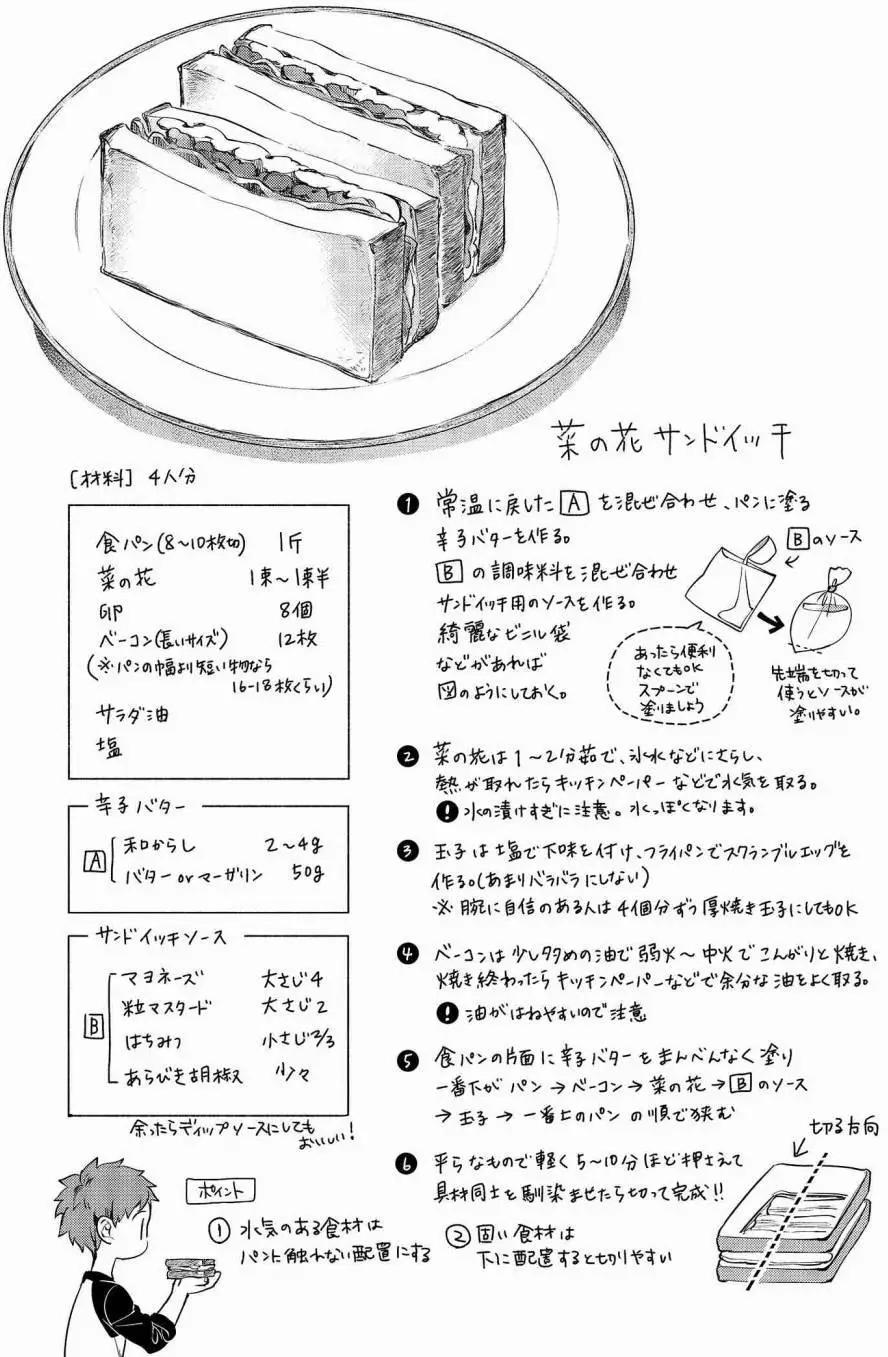 菜の花サンドイッチ
[材料] 4人分
食パン(8〜10枚切) 1斤
菜の花 1束〜1束半
卵 8個
ベーコン(長いサイズ) 12枚
(※パンの幅より短い物なら
16-18枚くらい)
サラダ油
塩
辛子バター
A
和からし 2〜4g
バターorマーガリン 50g
サンドイッチソース
B
マヨネーズ 大さじ4
粒マスタード 大さじ2
はちみつ 小さじ2/3
あらびき胡椒 少々
余ったらディップソースにしても
おいしい!
❶ 常温に戻したAを混ぜ合わせ、パンに塗る
辛子バターを作る。
Bの調味料を混ぜ合わせ
サンドイッチ用のソースを作る。
綺麗なビニル袋
などがあれば
図のようにしておく。
Bのソース
あったら便利
なくてもOK
スプーンで
塗りましょう
先端を切って
使うとソースが
塗りやすい。
❷ 菜の花は1〜2分茹で、氷水などにさらし、
熱が取れたらキッチンペーパーなどで水気を取る。
! 水の漬けすぎに注意。水っぽくなります。
❸ 玉子は塩で下味を付け、フライパンでスクランブルエッグを
作る。(あまりバラバラにしない)
※腕に自信のある人は4個分ずつ厚焼き玉子にしてもOK
❹ ベーコンは少し多めの油で弱火〜中火でこんがりと焼き、
焼き終わったらキッチンペーパーなどで余分な油をよく取る。
! 油がはねやすいので注意
❺ 食パンの片面に辛子バターをまんべんなく塗り
一番下がパン→ベーコン→菜の花→Bのソース
→玉子→一番上のパンの順で挟む
❻ 平らなもので軽く5〜10分ほど押さえて
具材同士を馴染ませたら切って完成!!
切る方向
ポイント
① 水気のある食材は
パンに触れない配置にする
② 固い食材は
下に配置すると切りやすい